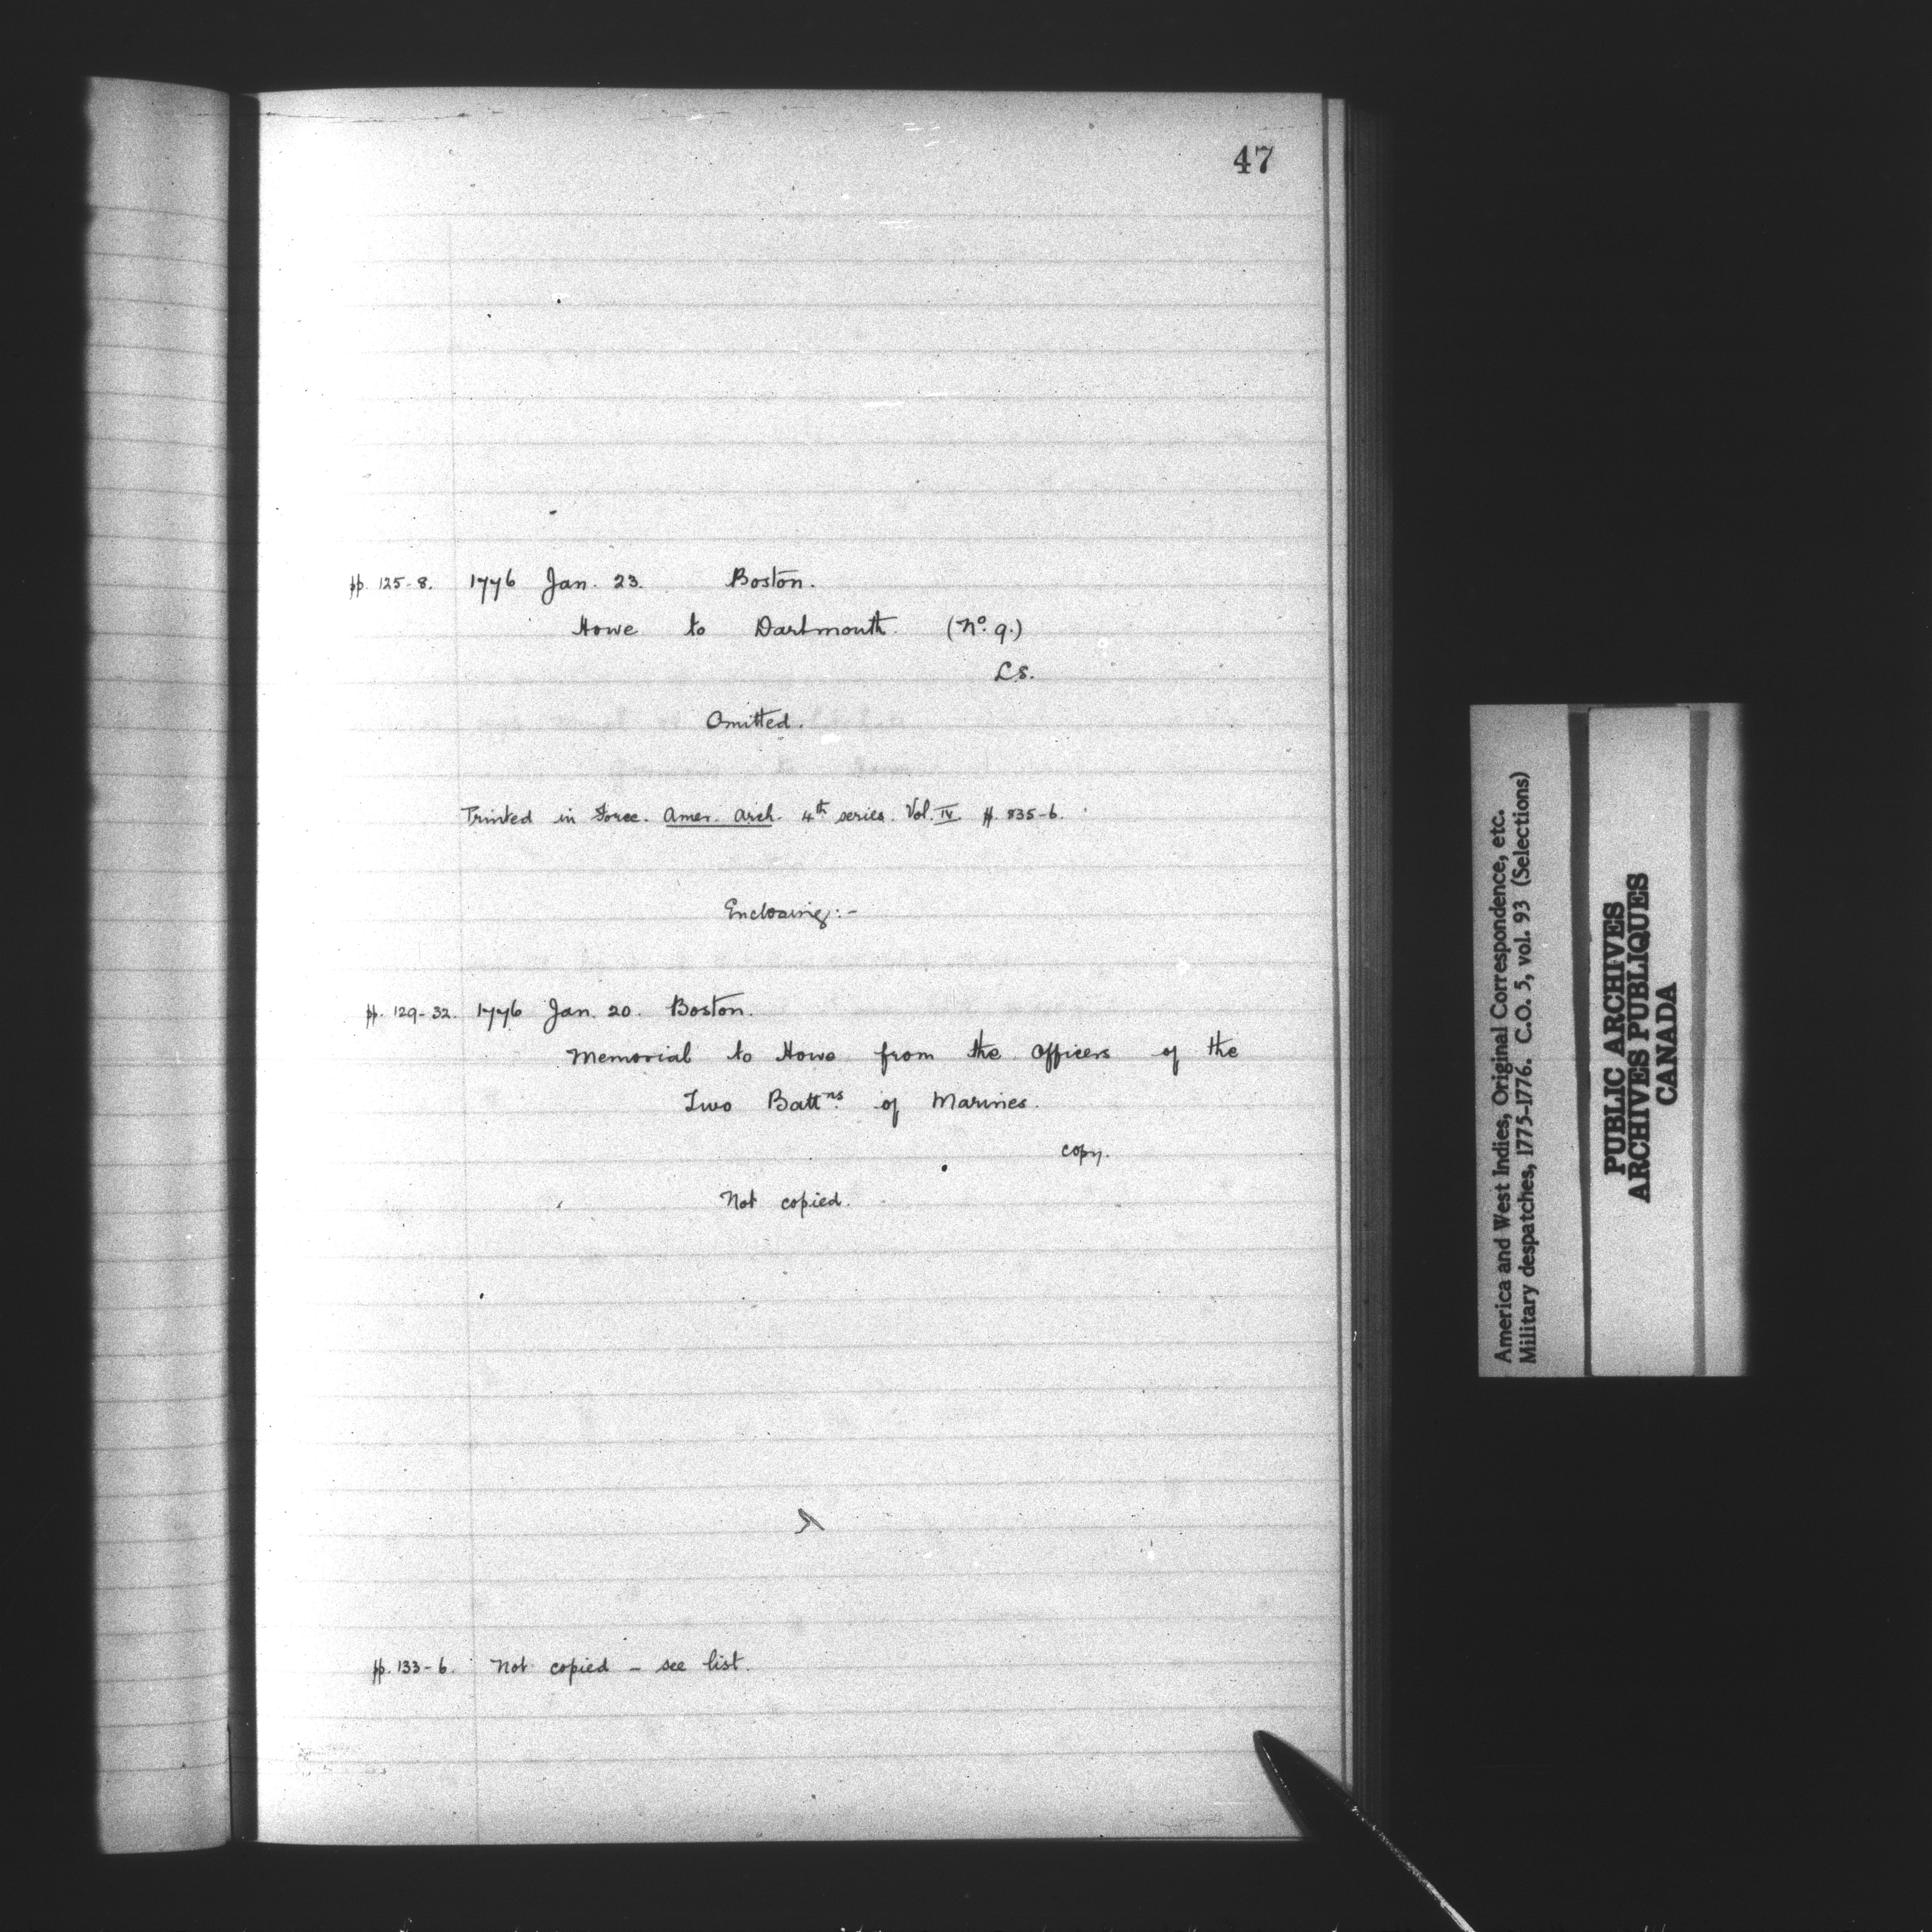 47
pp. 125-8. 1776 Jan. 23. Boston.
Howe to Dartmouth. (No. 9.)
L.S.
Omitted.
Printed in Force. Amer. Arch. 4th series. Vol. IV. pp. 835-6.
Enclosing:-
pp. 129-32. 1776 Jan. 20. Boston.
Memorial to Howe from the Officers of the
Two Battns. of Marines.
copy.
Not copied.
pp. 133-6. Not copied - see list.
America and West Indies, Original Correspondence, etc.
Military despatches, 1775-1776. C.O. 5, vol. 93 (Selections)
PUBLIC ARCHIVES
ARCHIVES PUBLIQUES
CANADA